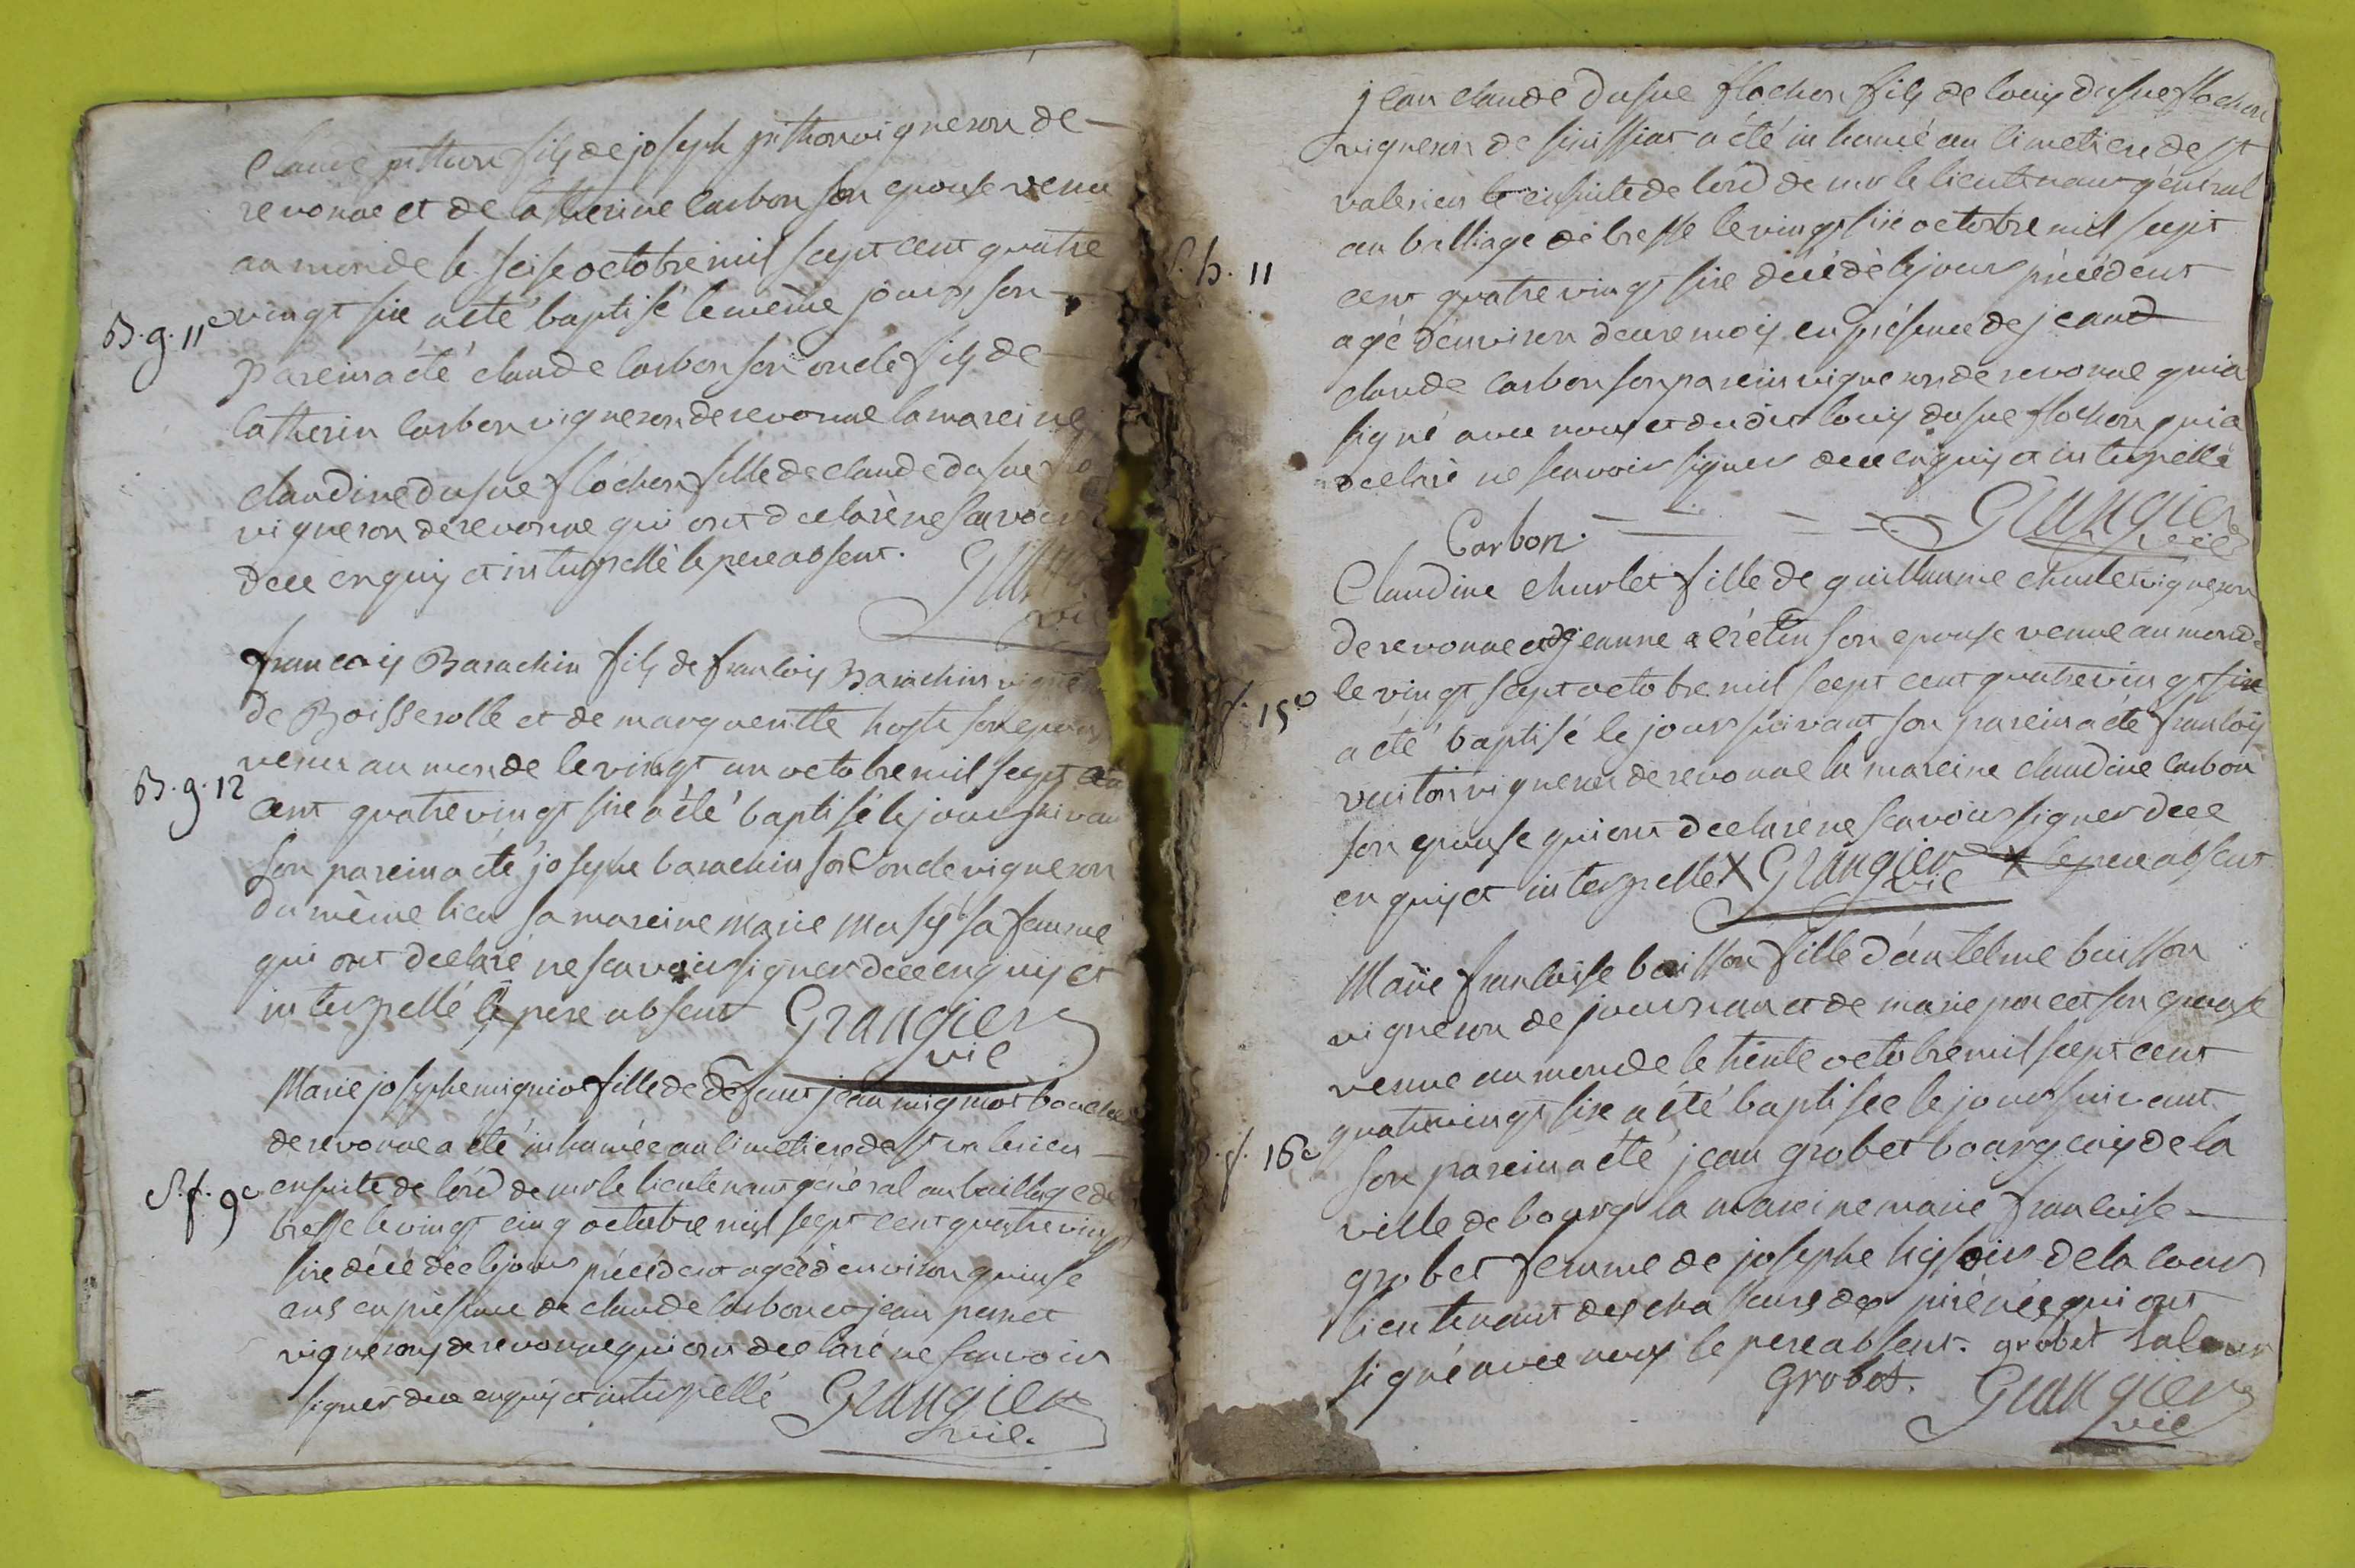 Claude pithion fils de joseph pithion vigneron de
revonne et de Catherine Carbon son epouse venu
au monde le seise octobre mil sept cent quatre
B. g. 11e
vingt sixe a été baptisé le même jours son
parein a été claude Carbon son oncle fils de
Catherin Carbon vigneron de revonne la mareine
claudine dusue flochon fille de claude dusue
vigneron de revonne qui ont declarè ne scavoir
dece enquis et interpellé le pere absent.
vic
francois Barachin fils de francois Barachin
de Boisserolle et de margueritte hoste son
venu au monde le vingt un octobre mil sept
B. g. 12
cent quatrevingt sixe a été baptisé le jour suivan
son parein a été josephe barachin son oncle vigneron
du même lieu sa mareine marie la femme
qui ont declaré ne scavoir signer dece enquis et
interpellé le pere absent Grangier
vic
Marie josephe migniot fille de defunt jean migniot
de revonne a été inhumée au Cimetiere de st valerien
S. f. 9e
ensuite de l'ord de mr le lieutenant général au bailliage de
bresse le vingt cinq octobre mil sept cent quatre ving
sixe décédèe le jour précédent agèè d'environ quinse
ans en présence de claude Carbon et jean perret
vignerons de revonne qui ont declaré ne scavoir
signer dece enquis et interpellé Grangier
vic.
jean claude dusue flochon fils de louis dusue flochon
vigneron de a été inhumé au Cimetiere de st
valerien ensuite de l'ord de mr le lieutenant général
au balliage de bresse le vingt sixe octobre mil sept
h. 11
cent quatrevingt sixe décédè le jour précédent
agé d'environ deuxe mois en présence de jean
claude Carbon son parein vigneron de revonne qui a
signé avec nous et du dit louis dusue flochon qui a
declaré ne scavoir signer dece enquis et interpellé
Carbon. Grangier
vic
Claudine churlet fille de guillaume churlet vigneron
de revonne et jeanne son epouse venue au monde
le vingt sept octobre mil sept cent quatrevingt sixe
f. 15e
a été baptisé le jour suivant son parein a été francois
vigneron de revonne la mareine claudine Carbon
son epouse qui ont declaré ne scavoir signer dece
enquis et interpellé X Grangier vic X le pere absent
Marie francoise buisson fille d'antelme buisson
vigneron de journan et de marie poncet son epouse
venue au monde le trente octobre mil sept cent
quatrevingt sixe a été baptisée le jour suivant
f. 16e
son parein a été jean grobet bourgeois de la
ville de bourg la mareine marie francoise
grobet femme de josephe de la cour
lieutenant des chasseurs des pirénés qui ont
signé avec nous le pere absent. grobet
grobet. Grangier
vic